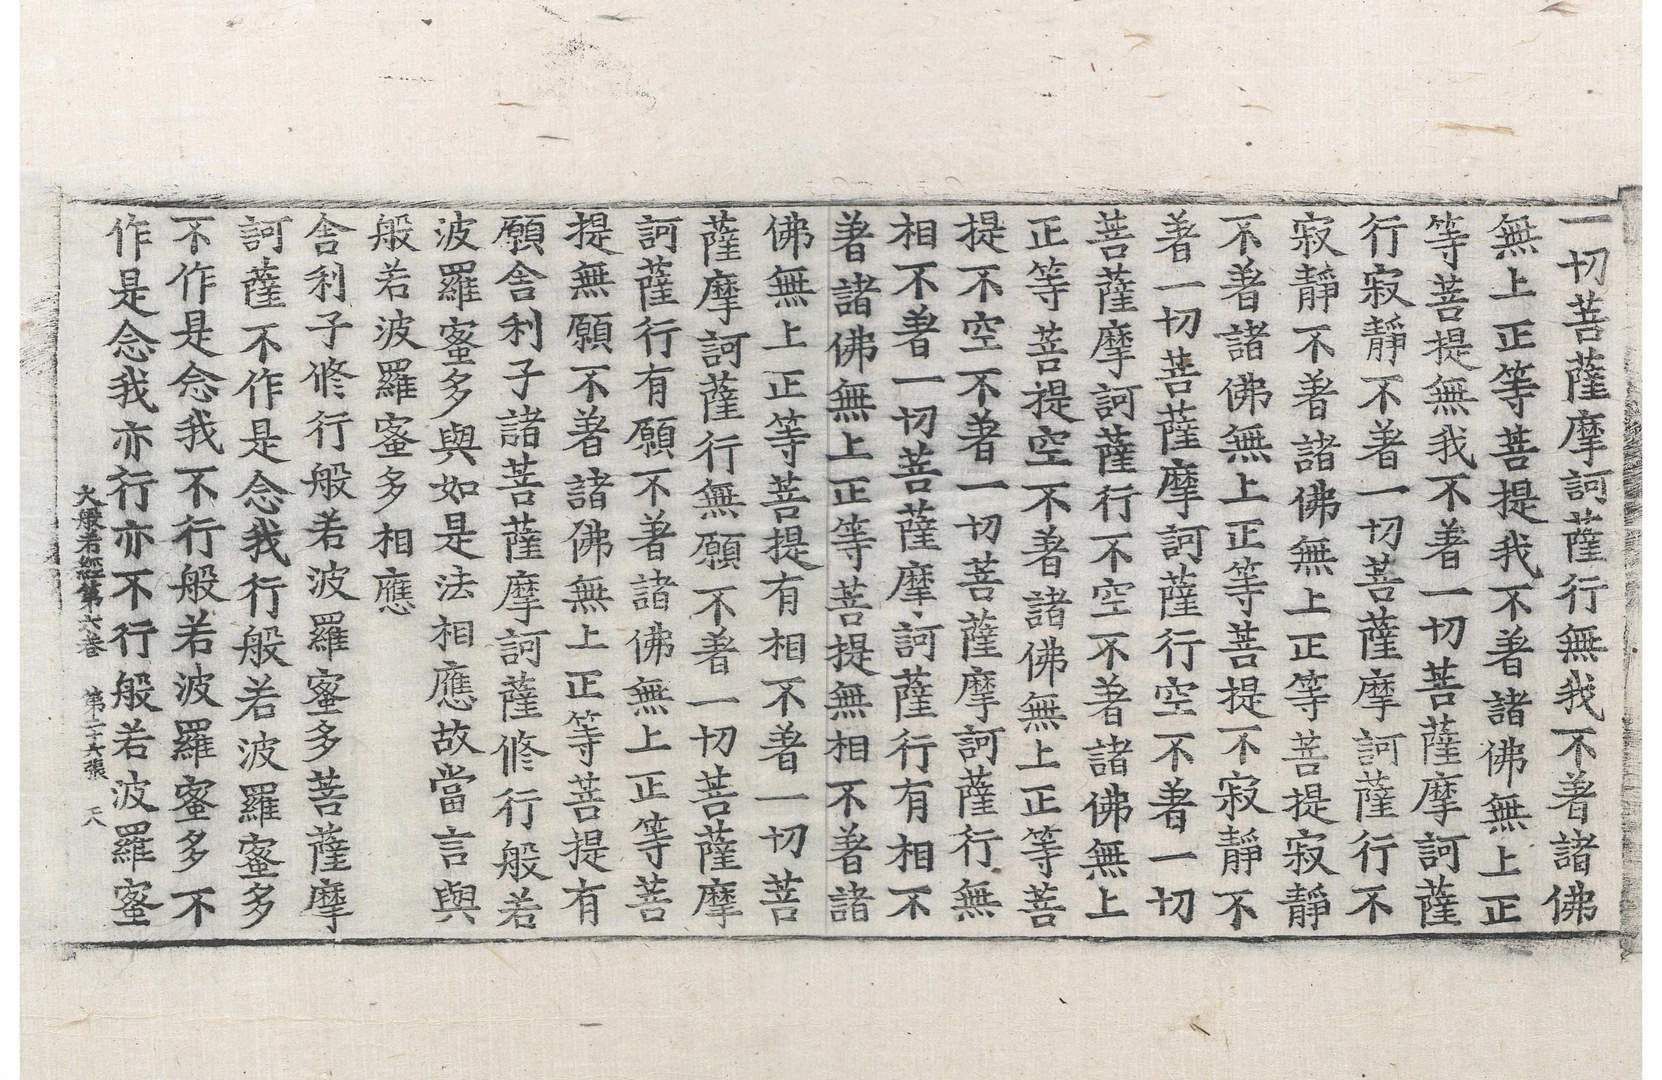 一切菩薩摩訶薩行無我不著諸佛
無上正等菩提我不著諸佛無上正
等菩提無我不著一切菩薩摩訶薩
行寂靜不著一切菩薩摩訶薩行不
寂靜不著諸佛無上正等菩提寂靜
不著諸佛無上正等菩提不寂靜不
著一切菩薩摩訶薩行空不著一切
菩薩摩訶薩行不空不著諸佛無上
正等菩提空不著諸佛無上正等菩
提不空不著一切菩薩摩訶薩行無
相不著一切菩薩摩訶薩行有相不
著諸佛無上正等菩提無相不著諸
佛無上正等菩提有相不著一切菩
薩摩訶薩行無願不著一切菩薩摩
訶薩行有願不著諸佛無上正等菩
提無願不著諸佛無上正等菩提有
願舍利子諸菩薩摩訶薩修行般若
波羅蜜多與如是法相應故當言與
般若波羅蜜多相應
舍利子修行般若波羅蜜多菩薩摩
訶薩不作是念我行般若波羅蜜多
不作是念我不行般若波羅蜜多不
作是念我亦行亦不行般若波羅蜜
大般若經第六卷 第二十六張 天